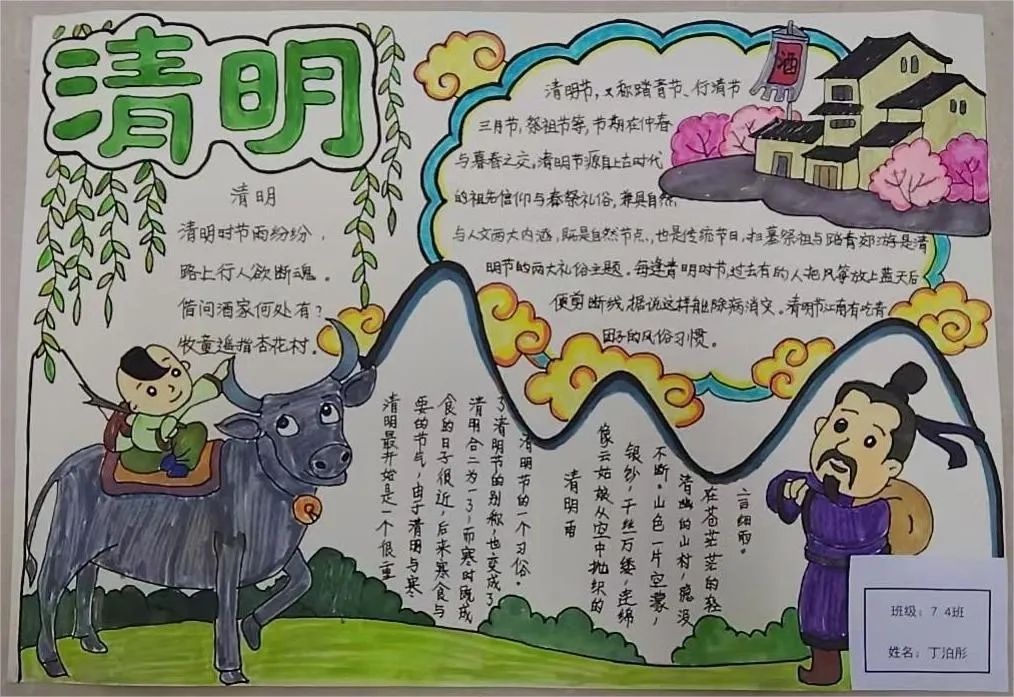 清明
清明
清明时节雨纷纷，
路上行人欲断魂。
借问酒家何处有？
牧童遥指杏花村。
酒
清明节，又称踏青节、行清节
三月节，祭祖节等，节期在仲春
与暮春之交，清明节源自上古时代
的祖先信仰与春祭礼俗，兼具自然
与人文两大内涵，既是自然节点，也是传统节日，扫墓祭祖与踏青郊游是清
明节的两大礼俗主题。每逢清明时节，过去有的人把风筝放上蓝天后
便剪断线，据说这样能除病消灾。清明节江南有吃青
团子的风俗习惯。
清明最开始是一个很重
要的节气，由于清明与寒
食的日子很近，后来寒食与
清明合二为一了，而寒时既成
了清明节的别称也变成了
清明节的一个习俗。
清明雨
像云姑娘从空中抛织的
银纱，千丝万缕，连绵
不断。山色一片空濛，
清幽的山村，隐没
在苍茫茫的轻
细雨。
班级：7 4班
姓名：丁泊彤